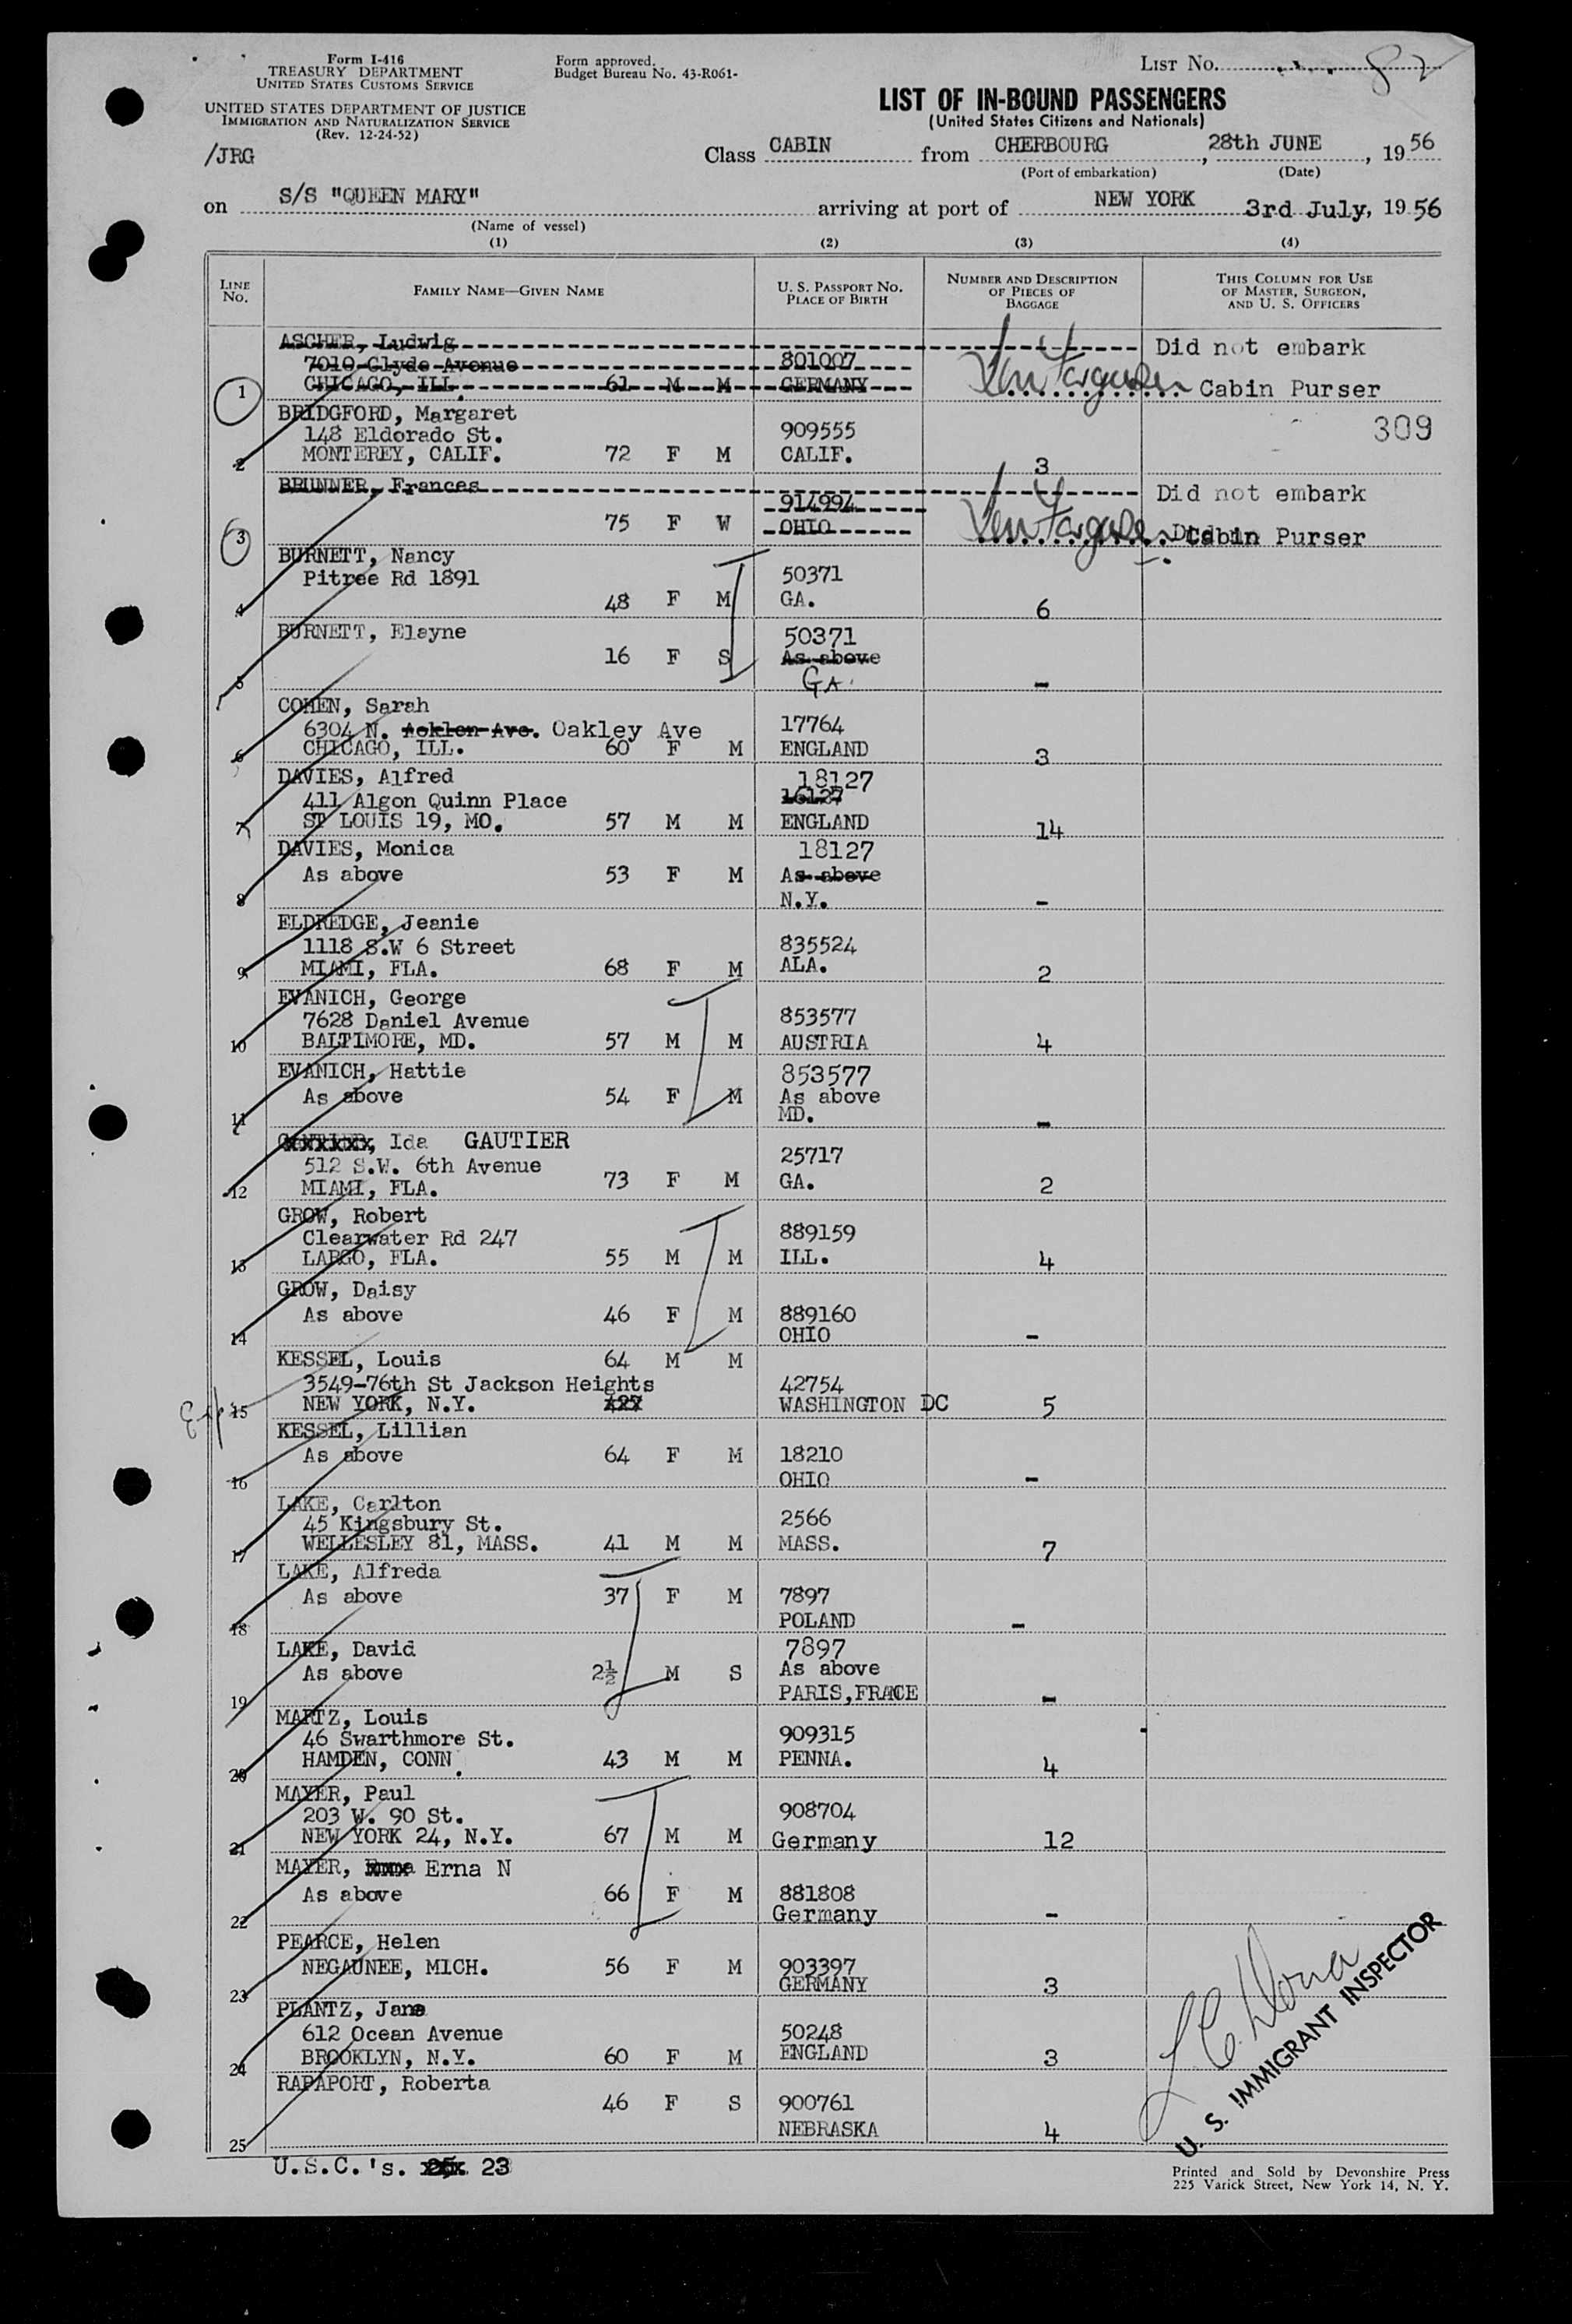 Form I-416
TREASURY DEPARTMENT
UNITED STATES CUSTOMS SERVICE
UNITED STATES DEPARTMENT OF JUSTICE
IMMIGRATION AND NATURALIZATION SERVICE
(Rev. 12-24-52)
Form approved.
Budget Bureau No. 43-R061-
LIST NO. 82
LIST OF IN-BOUND PASSENGERS
(United States Citizens and Nationals)
/JRG
Class CABIN from CHERBOURG, 28th JUNE, 1956
(Port of embarkation) (Date)
on S/S "QUEEN MARY" arriving at port of NEW YORK 3rd July, 1956
(Name of vessel)
(1) (2) (3) (4)
LINE NO.
FAMILY NAME—GIVEN NAME
U. S. PASSPORT NO.
PLACE OF BIRTH
NUMBER AND DESCRIPTION
OF PIECES OF
BAGGAGE
THIS COLUMN FOR USE
OF MASTER, SURGEON,
AND U. S. OFFICERS
ASCHER, Ludwig Did not embark
7010 Clyde Avenue 801007
1 CHICAGO, ILL. 61 M M GERMANY Cabin Purser
BRIDGFORD, Margaret 309
148 Eldorado St. 909555
2 MONTEREY, CALIF. 72 F M CALIF. 3
BRUNNER, Frances Did not embark
914994
3 75 F W OHIO Cabin Purser
BURNETT, Nancy
Pitree Rd 1891 50371
4 48 F M GA. 6
BURNETT, Elayne 50371
16 F S As above
5 GA. -
COHEN, Sarah
6304 N. Oakley Ave 17764
6 CHICAGO, ILL. 60 F M ENGLAND 3
DAVIES, Alfred 18127
411 Algon Quinn Place 16127
7 ST LOUIS 19, MO. 57 M M ENGLAND 14
DAVIES, Monica 18127
As above 53 F M As above
8 N.Y. -
ELDREDGE, Jeanie
1118 S.W 6 Street 835524
9 MIAMI, FLA. 68 F M ALA. 2
EVANICH, George
7628 Daniel Avenue 853577
10 BALTIMORE, MD. 57 M M AUSTRIA 4
EVANICH, Hattie 853577
As above 54 F M As above
11 MD. -
, Ida GAUTIER
512 S.W. 6th Avenue 25717
12 MIAMI, FLA. 73 F M GA. 2
GROW, Robert
Clearwater Rd 247 889159
13 LARGO, FLA. 55 M M ILL. 4
GROW, Daisy
As above 46 F M 889160
14 OHIO -
KESSEL, Louis 64 M M
3549-76th St Jackson Heights 42754
15 NEW YORK, N.Y. WASHINGTON DC 5
KESSEL, Lillian
As above 64 F M 18210
16 OHIO -
LAKE, Carlton
45 Kingsbury St. 2566
17 WELLESLEY 81, MASS. 41 M M MASS. 7
LAKE, Alfreda
As above 37 F M 7897
18 POLAND -
LAKE, David 7897
As above 2½ M S As above
19 PARIS,FRACE -
MARTZ, Louis
46 Swarthmore St. 909315
20 HAMDEN, CONN. 43 M M PENNA. 4
MAYER, Paul
203 W. 90 St. 908704
21 NEW YORK 24, N.Y. 67 M M Germany 12
MAYER, Erna N
As above 66 F M 881808
22 Germany -
PEARCE, Helen
NEGAUNEE, MICH. 56 F M 903397
23 GERMANY 3
PLANTZ, Jane
612 Ocean Avenue 50248
24 BROOKLYN, N.Y. 60 F M ENGLAND 3
RAPAPORT, Roberta
46 F S 900761
25 NEBRASKA 4
U. S. IMMIGRANT INSPECTOR
U.S.C.'s. 23
Printed and Sold by Devonshire Press
225 Varick Street, New York 14, N. Y.